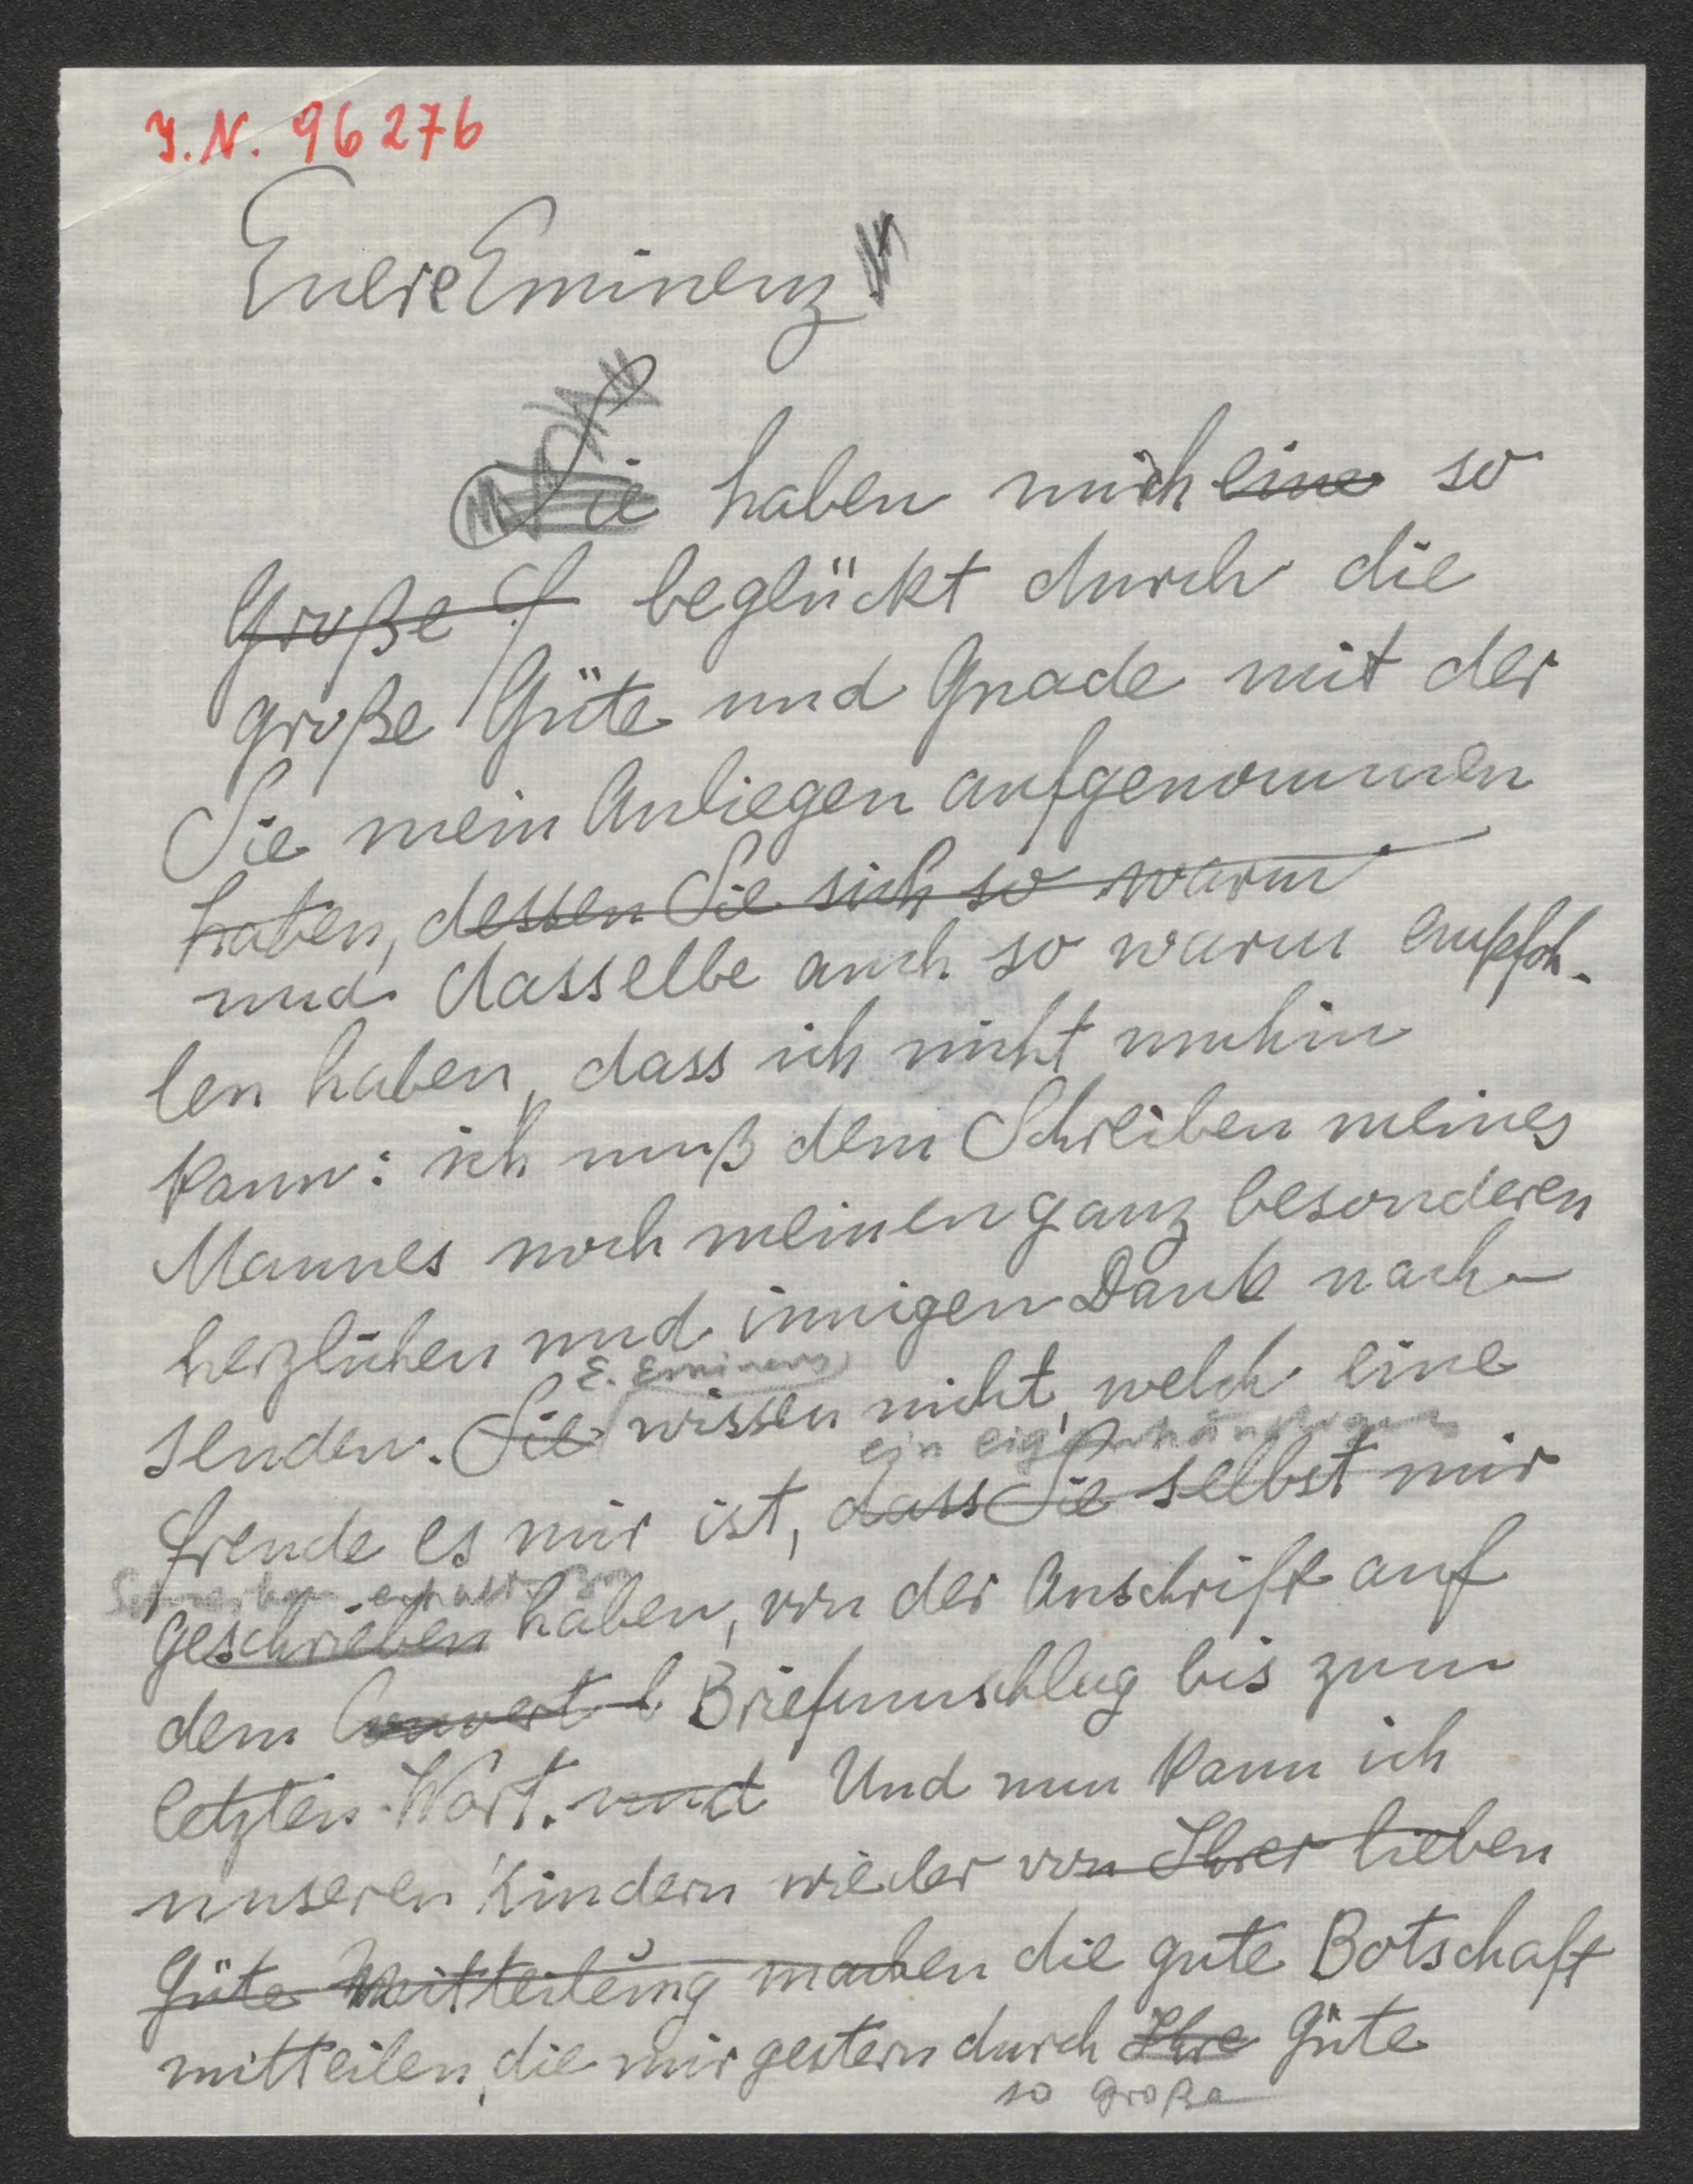 I.N. 96276
Euere Eminenz!
Sie haben mich eine so
Große G beglückt durch die
große Güte und Gnade mit der
Sie mein Anliegen aufgenommen
haben, dessen Sie sich so warm
und dasselbe auch so warm empfoh-
len haben, dass ich nicht umhin
kann: ich muß dem Schreiben meines
Mannes noch meinen ganz besonderen
herzlichen und innigen Dank nach-
E. Eminenz
senden. Sie wissen nicht, welch eine
ein eigenhändiges
Freude es mir ist, dass Sie selbst mir
Schreiben erhalten zu
geschrieben haben, von der Anschrift auf
dem Couvert b Briefumschlag bis zum
letzten Wort. und Und nun kann ich
unseren Kindern wieder von Ihrer lieben
Güte Mitteilung machen die gute Botschaft
mitteilen, die mir gestern durch Ihre Güte
so große